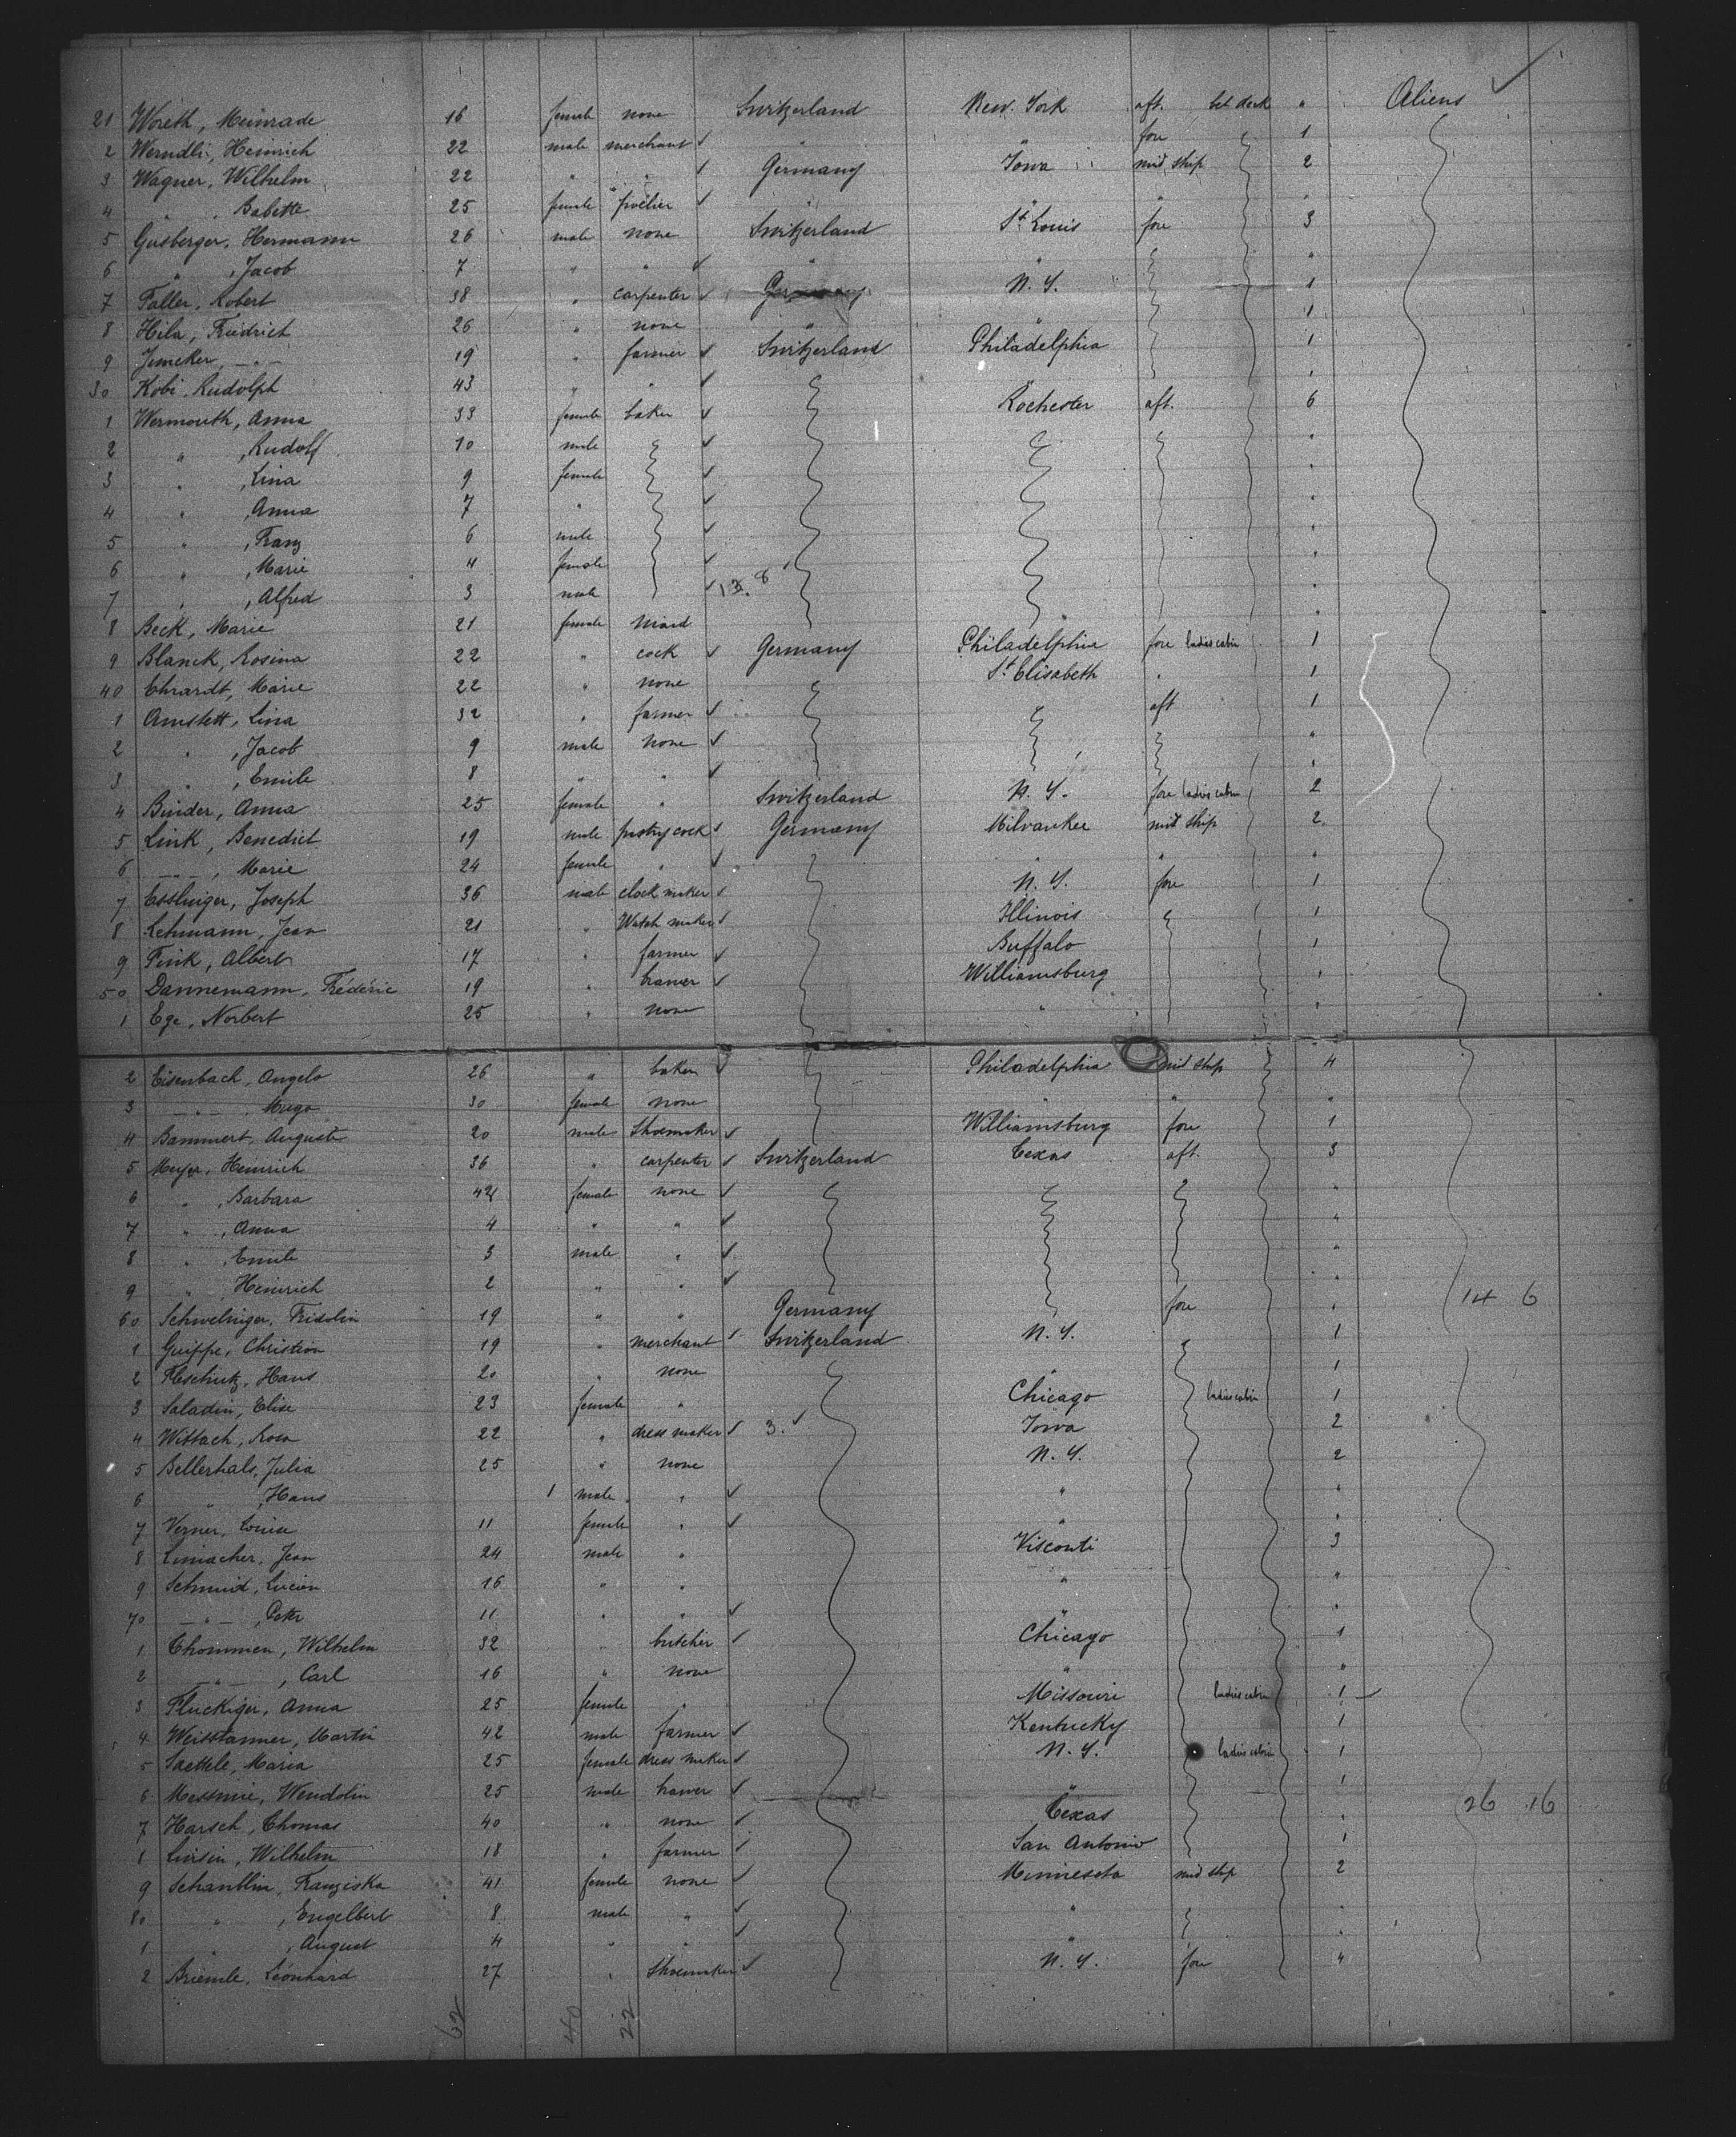 21 Woreth, Meinrade 16 female none Switzerland New. York aft. bet deck " Aliens
2 Werndli, Heinrich 22 male merchant " " fore 1
3 Wagner, Wilhelm 22 " " Germany Iowa mid ship 2
4 " Babette 25 female " " " "
5 Gusberger, Hermann 26 male none Switzerland St. Louis fore 3
6 " , Jacob 7 " " " " "
7 Faller, Robert 38 " carpenter Germany N. Y. 1
8 Hila, Friedrich 26 " none " " 1
9 Jmeker, - " - 19 " farmer Switzerland Philadelphia 1
30 Kobi, Rudolph 43 " " "
1 Wermouth, Anna 33 female baker Rochester aft. 6
2 " , Rudolf 10 male "
3 " , Lina 9 female "
4 " , Anna 7 " "
5 " , Franz 6 male "
6 " , Marie 4 female "
7 " , Alfred 3 male 13. 8 "
8 Beck, Marie 21 female maid "
9 Blanck, Rosina 22 " cock Germany Philadelphia fore ladies cabin 1
40 Ehrardt, Marie 22 " none St. Elisabeth " 1
1 Amstett, Lina 32 " farmer aft 1
2 " , Jacob 9 male none "
3 " , Emile 8 " " "
4 Binder, Anna 25 female " Switzerland N. Y. fore ladies cabin 2
5 Link, Benedict 19 male pastry cock Germany Milvaukee mid ship 2
6 - " - , Marie 24 female " " " "
7 Esslinger, Joseph 36 male clock maker N. Y. fore 1
8 Lehmann, Jean 21 " Watch maker Illinois 1
9 Fink, Albert 17 " farmer Buffalo 1
50 Dannemann, Fréderic 19 " Williamsburg 1
1 Ege, Norbert 25 " none " "
2 Eisenbach, Angelo 26 " baker Philadelphia mid ship 4
3 - " - 30 female none " " "
4 Bammert, Auguste 20 male Shoemaker Williamsburg fore 1
5 Meyer, Heinrich 36 " carpenter Switzerland Texas aft. 3
6 " , Barbara 42 female none "
7 " , Anna 4 " " "
8 " , Emile 3 male " "
9 " , Heinrich 2 " " "
60 Schwelniger, Fridolin 19 " " Germany fore " 14 6
1 Guippe, Christian 19 " merchant Switzerland N. Y. 1
2 Fleschutz, Hans 20 " none " 1
3 Saladin, Elise 23 female " Chicago ladies cabin 1
4 Wittach, Rosa 22 " dress maker 3. Iowa 2
5 Bellerhals, Julia 25 " none N. Y. 2
6 " , Hans 1 male " " "
7 Verner, Louise 11 female " " "
8 Limacher, Jean 24 male " Visconti 3
9 Schmid, Lucien 16 " " " "
70 - " - , Peter 11 " " " "
1 Thommen, Wilhelm 32 " butcher Chicago 1
2 - " - , Carl 16 " none " "
3 Fluckiger, Anna 25 female " Missouri ladies cabin 1
4 Weisstanner, Martin 42 male farmer Kentucky 1
5 Saettele, Maria 25 female dress maker N. Y. ladies cabin 1
6 Messmie, Wendolin 25 male " 1
7 Harsch, Thomas 40 " none Texas " 26 16
8 Linsin, Wilhelm 18 " farmer San Antonio 1
9 Schanblin, Franziska 41 female none Minnesota mid ship 2
80 " , Engelbert 8 male " " "
1 " , August 4 " " " "
2 Briemle, Léonhard 27 " Shoemaker N. Y. fore 4
62 40 22